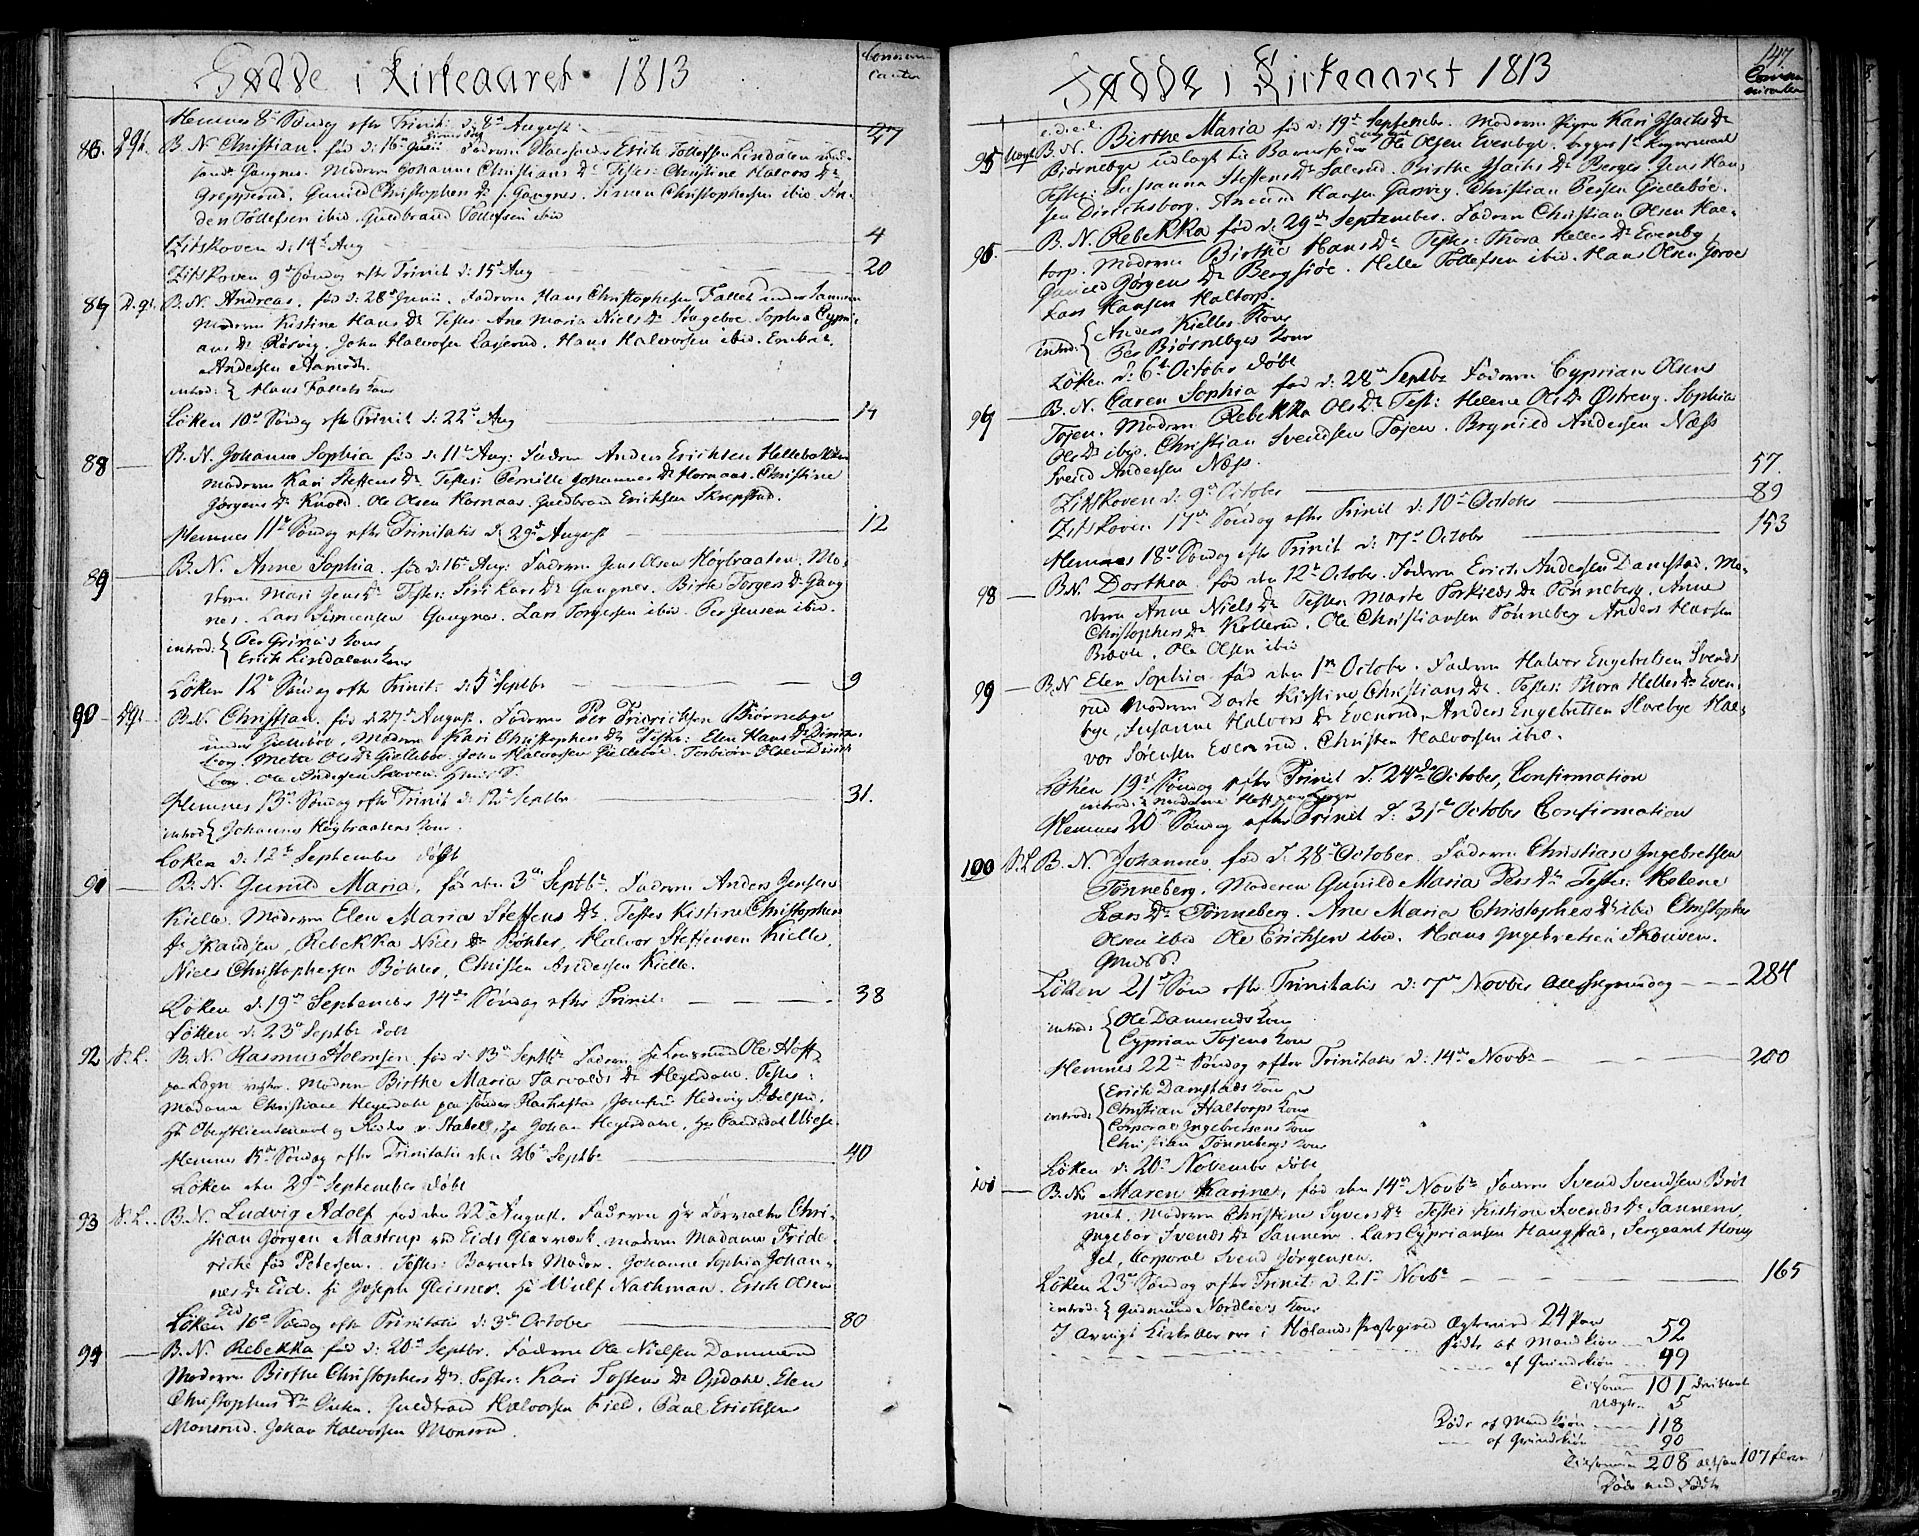 Fødde i Kirkeaaret 1813
Hemnes 8de Søndag efter Trinit: d: 8de August: 47
86. B.N. Christian, fød d: 16de Junii Faderen Erich Tollefsen Lindalen
Gangnes. Moderen Johanne Christians Dr Testes: Christine Halvors Dr
Grepperud. Gunild Christophers Dr Gangnes. Simen Christophersen ibid. An-
den Tollefsen ibid. Guldbrand Tollefsen ibid
d: 14de Aug 4
9de Søndag efter Trinit d: 15de Aug 20
87 B.N. Andreas. fød d: 28de Junii. Faderen Hans Christophersen Fallet under Sannem
Moderen Kistine Hans Dr Testes: Ane Maria Niels Dr Sophia Cypri-
ans Dr Rørvig. John Halvorsen Hans Halvorsen ibid. Embret
Andersen Aamodt.
introd: { Hans Fallets Kone
Løken 10de Søndag efter Trinit d: 22de Aug 14
88 B.N. Johanne Sophia fød d: 11de Aug: Faderen Anders Erichsen
Moderen Kari Steffens Dr Testes: Pernille Johannes Dr Hornaas. Christine
Jørgens Dr Knold. Ole Olsen Hornaas. Guldbrand Erichsen
Hemnes 11te Søndag efter Trinitatis d: 29de August 12
89 B.N. Anne Sophia. fød d: 16de Aug: Faderen Jens Olsen Høgbraaten. Mo-
deren Mari Jens Dr Testes: Siri Lars Dr Gangnes. Birthe Torgers Dr Gang
nes. Lars Simensen Gangnes. Lars Torgersen ibid. Per Jensen ibid.
introd: { Per Kone
Erich Lindalens Kone
Løken 12te Søndag efter Trinit: d: 5te Septbr 9
90 B.N. Christian. fød d: 27de August. Faderen Per Fridrichsen Biørnebye
under Giellebøe. Moderen Kari Christophers Dr Testes: Elen Hans Dr
Mette Ols Dr Giellebøe. John Halvorsen Giellebøe. Torbiørn Olsen
Ole Andersen Skoven.
Hemnes 13de Søndag efter Trinit d: 12te Septbr 31.
introd { Johannes Høgbraatens Kone.
Løken d: 12te September døbt
91 B.N. Gunild Maria, fød den 3de Septbr. Faderen Anders Jensen
Kielle. Moderen Elen Maria Steffens Dr. Testes Kistine Christophers
Dr Skandsen, Rebekka Niels Dr Bøhler, Halvor Steffensen Kielle.
Niels Christophersen Bøhler, Christen Andersen Kielle.
Løken d: 19de September 14de Søndag efter Trinit: 38
Løken d: 23de Septbr døbt
92 B.N. Rasmus Holmsen fød d: 13de Septbr Faderen Ole Hoft
Moderen Birthe Maria Tarvalds Dr Heyerdahl. Testes:
Madame Christiane Heyerdahl paa Hedevig Abelsted,
Hr Oberstlieutenant og Ridder v: Stabell, Hr Johan Heyerdahl, Hr Candidat
Hemnes 15de Søndag efter Trinitatis den 26de Septbr 40
Løken den 29de September døbt
93 B.N. Ludvig Adolf fød den 22de August. Faderen Hr Forvalter Chri-
stian Jørgen Mastrup ved Eids Glasværk. Moderen Madame Fride-
riche fød Petersen. Testes: Barnets Moder. Johanne Sophia Johan-
nes Dr Eid. Hr Joseph Gleisner. Hr Wulf Nachman. Erich Olsen
Eid
Løken 16de Søndag efter Trinitatis d: 3de October 80
94 B.N. Rebekka fød d: 20de Septbr. Faderen Ole Nielsen Dammerud
Moderen Birthe Christophers Dr. Testes: Kari Tostens Dr Opdahl. Elen
Christophers Dr Guldbrand Halvorsen Field. Paul Erichsen
Monsrud. Johan Halvorsen Monsrud.
147.
Fødde i Kirkeaaret 1813
95 B.N. Birthe Maria fød d: 19de Septembr. Moderen Pigen Kari Isachs Dr
Biørnebye udlagt til Barnefader Ole Olsen Evenbye. begges 1te Leyermaal
Testes: Susanna Steffens Dr Birthe Isachs Dr Berger. Jens Han-
sen Dirichsborg. Amund Hansen Garsvig. Christian Persen Giellebøe.
96. B.N. Rebekka fød d: 29de September. Faderen Christian Olsen Hal-
torp. Moderen Birthe Hans Dr Testes: Thora Helles Dr Evenby
Gunild Jørgens Dr Bergsiøe. Helle Tollefsen ibid. Hans Olsen
Lars Hansen Haltorp.
introd: { Anders Kielles Kone
Per Biørnebyes Kone
Løken d: 6te October døbt
97 B.N. Caren Sophia fød d: 28de Septbr Faderen Cyprian Olsen
Tojen. Moderen Rebekka Ols Dr Test: Helene Ols Dr Østreng. Sophia
Ols Dr ibid. Christian Svendsen Tojen. Brynild Andersen Næss
Svend Andersen Næss. 57.
d: 9de October 89
17de Søndag efter Trinit d: 10de October 153
Hemnes 18de Søndag efter Trinit d: 17de October
98 B.N. Dorthea fød den 12te October. Faderen Erich Andersen Damstad. Mo-
deren Anne Niels Dr Testes Marte Torkields Dr Tønneberg. Anne
Christophers Dr Kollerud. Ole Christiansen Tønneberg Anders Hansen
Ole Olsen ibid
99 B.N Elen Sophia fød den 1te October. Faderen Halvor Engebretsen Svends
rud Moderen Dorte Kirstine Christians Dr. Testes: Thora Helles Dr Even-
bye, Susanne Halvors Dr Evenrud, Anders Engebretsen Horebye Hal-
vor Sørensen Evenrud. Christen Halvorsen ibid.
Løken 19de Søndag efter Trinit d. 24de October, Confirmation
Hemnes 20de Søndag efter Trinit d: 31te October Confirmation
100 B.N. Johannes fød d. 28de October. Faderen Christian Ingebretsen
Tønneberg. Moderen Gunild Maria Pers Dr Testes: Helene
Lars Dr Tønneberg. Ane Maria Christophers Dr ibid Christopher
Olsen ibid Ole Erichsen ibid. Hans Ingebretsen Skouven.
Løken 21de Sønd efter Trinitatis d: 7de Novber 284
introd: { Ole Dameruds Kone
Cyprian Tojens Kone
Hemnes 22de Søndag efter Trinitatis d: 14de Novbr 200
introd: { Erich Damstads Kone
Christian Haltorps Kone
Corporal Ingebretsens Kone
Christian Tønnebergs Kone
Løken d: 20de November døbt
101 B.N. Maren Karine, fød den 14de Novbr Faderen Svend Svendsen
Moderen Christine Syvers Dr Testes Kistine Svends Dr Sannem.
Ingebor Svends Dr Sannem. Lars Cypriansen Haugstad, Sergeant
Corporal Svend Jørgensen.
Løken 23de Søndag efter Trinit: d. 21de Novbr 165
introd: { Gudmund Nordlies Kone
I Kirke Aar ere i Hølands Præstegield Ægteviede 24 Par
Fødte af Mandkiøn 52
af Qvindekiøn 49
Tilsamen 101
5
Døde af Mandkiøn 118
af Qvindekiøn 90
Tilsamen 208 altsaa 107 flere
Døde end Fødte